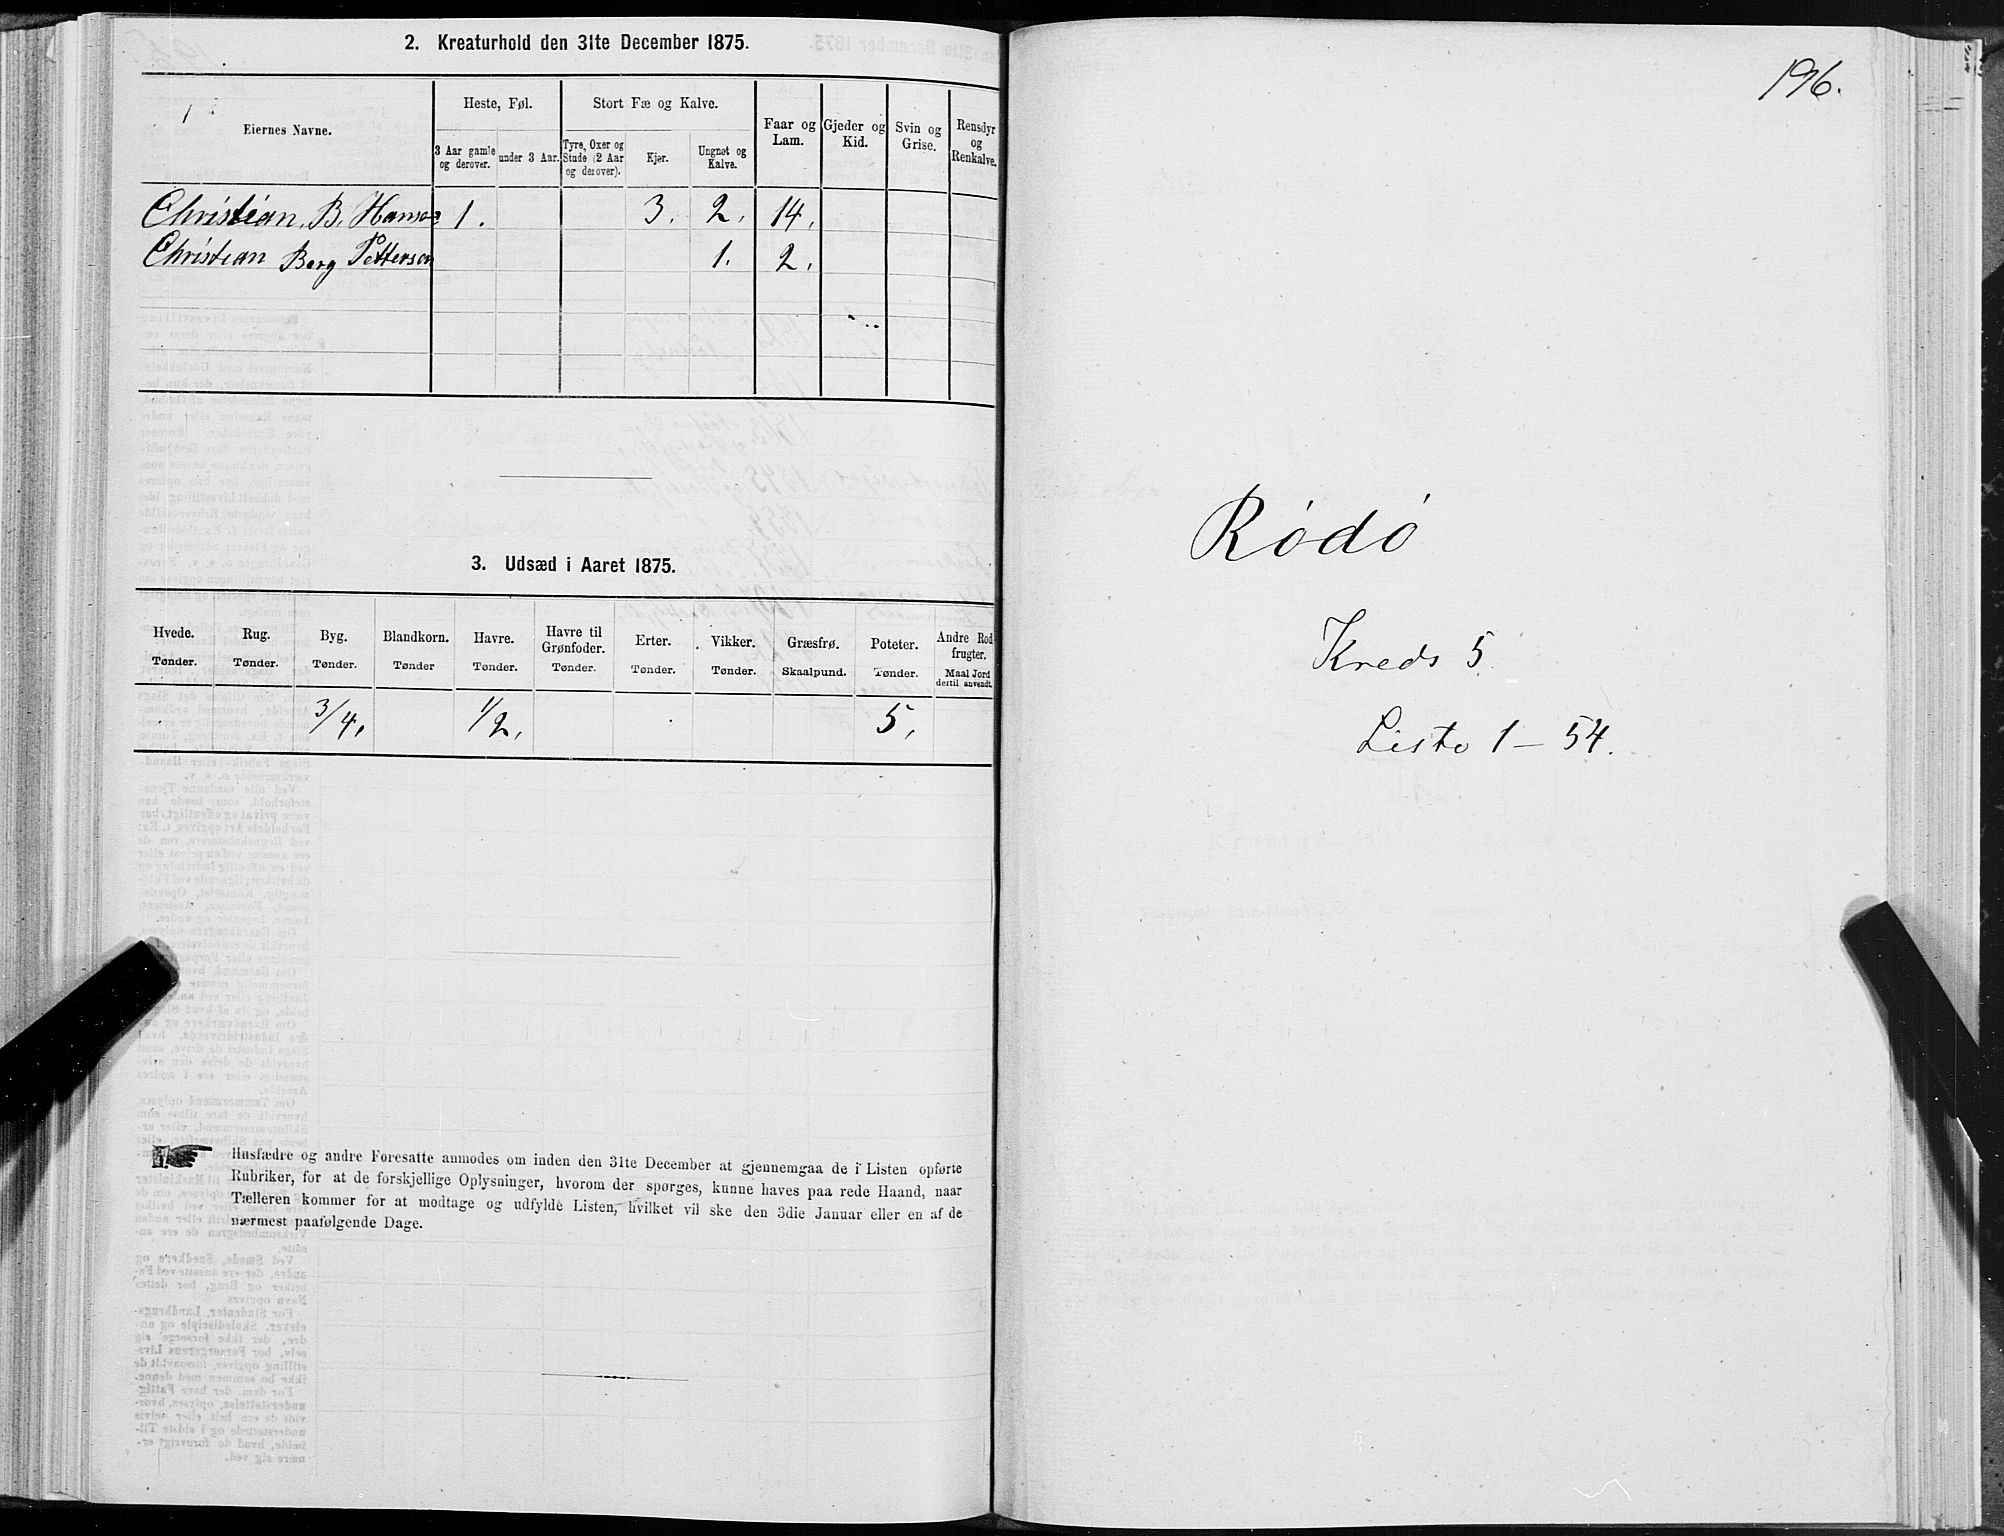 2. Kreaturhold den 31te December 1875.
Eiernes Navne.
Heste, Føl.
Stort Fæ og Kalve.
Faar og Lam.
Gjeder og Kid.
Svin og Grise.
Rensdyr og Renkalve.
3 Aar gamle og derover.
under 3 Aar.
Tyre, Oxer og Stude (2 Aar og derover).
Kjør.
Ungnøt og Kalve.
Christian. B. Hansen 1. 3. 2. 14.
Christian Berg Pettersen 1. 2.
3. Udsæd i Aaret 1875.
Hvede. Rug. Byg. Blandkorn. Havre. Havre til Grønfoder. Erter. Vikker. Græsfrø. Poteter. Andre Rodfrugter.
Tønder. Tønder. Tønder. Tønder Tønder. Tønder. Tønder. Tønder. Skaalpund. Tønder. Maal Jord dertil anvendt.
3/4. 1/2. 5.
Husfædre og andre Foresatte anmodes om inden den 31te December at gjennemgaa de i Listen opførte
Rubriker, for at de forskjellige Oplysninger, hvorom der spørges, kunne haves paa rede Haand, naar
Tælleren kommer for at modtage og udfylde Listen, hvilket vil ske den 3die Januar eller en af de
nærmest paafølgende Dage.
196.
Rödö
Kreds 5.
Liste 1 – 54.